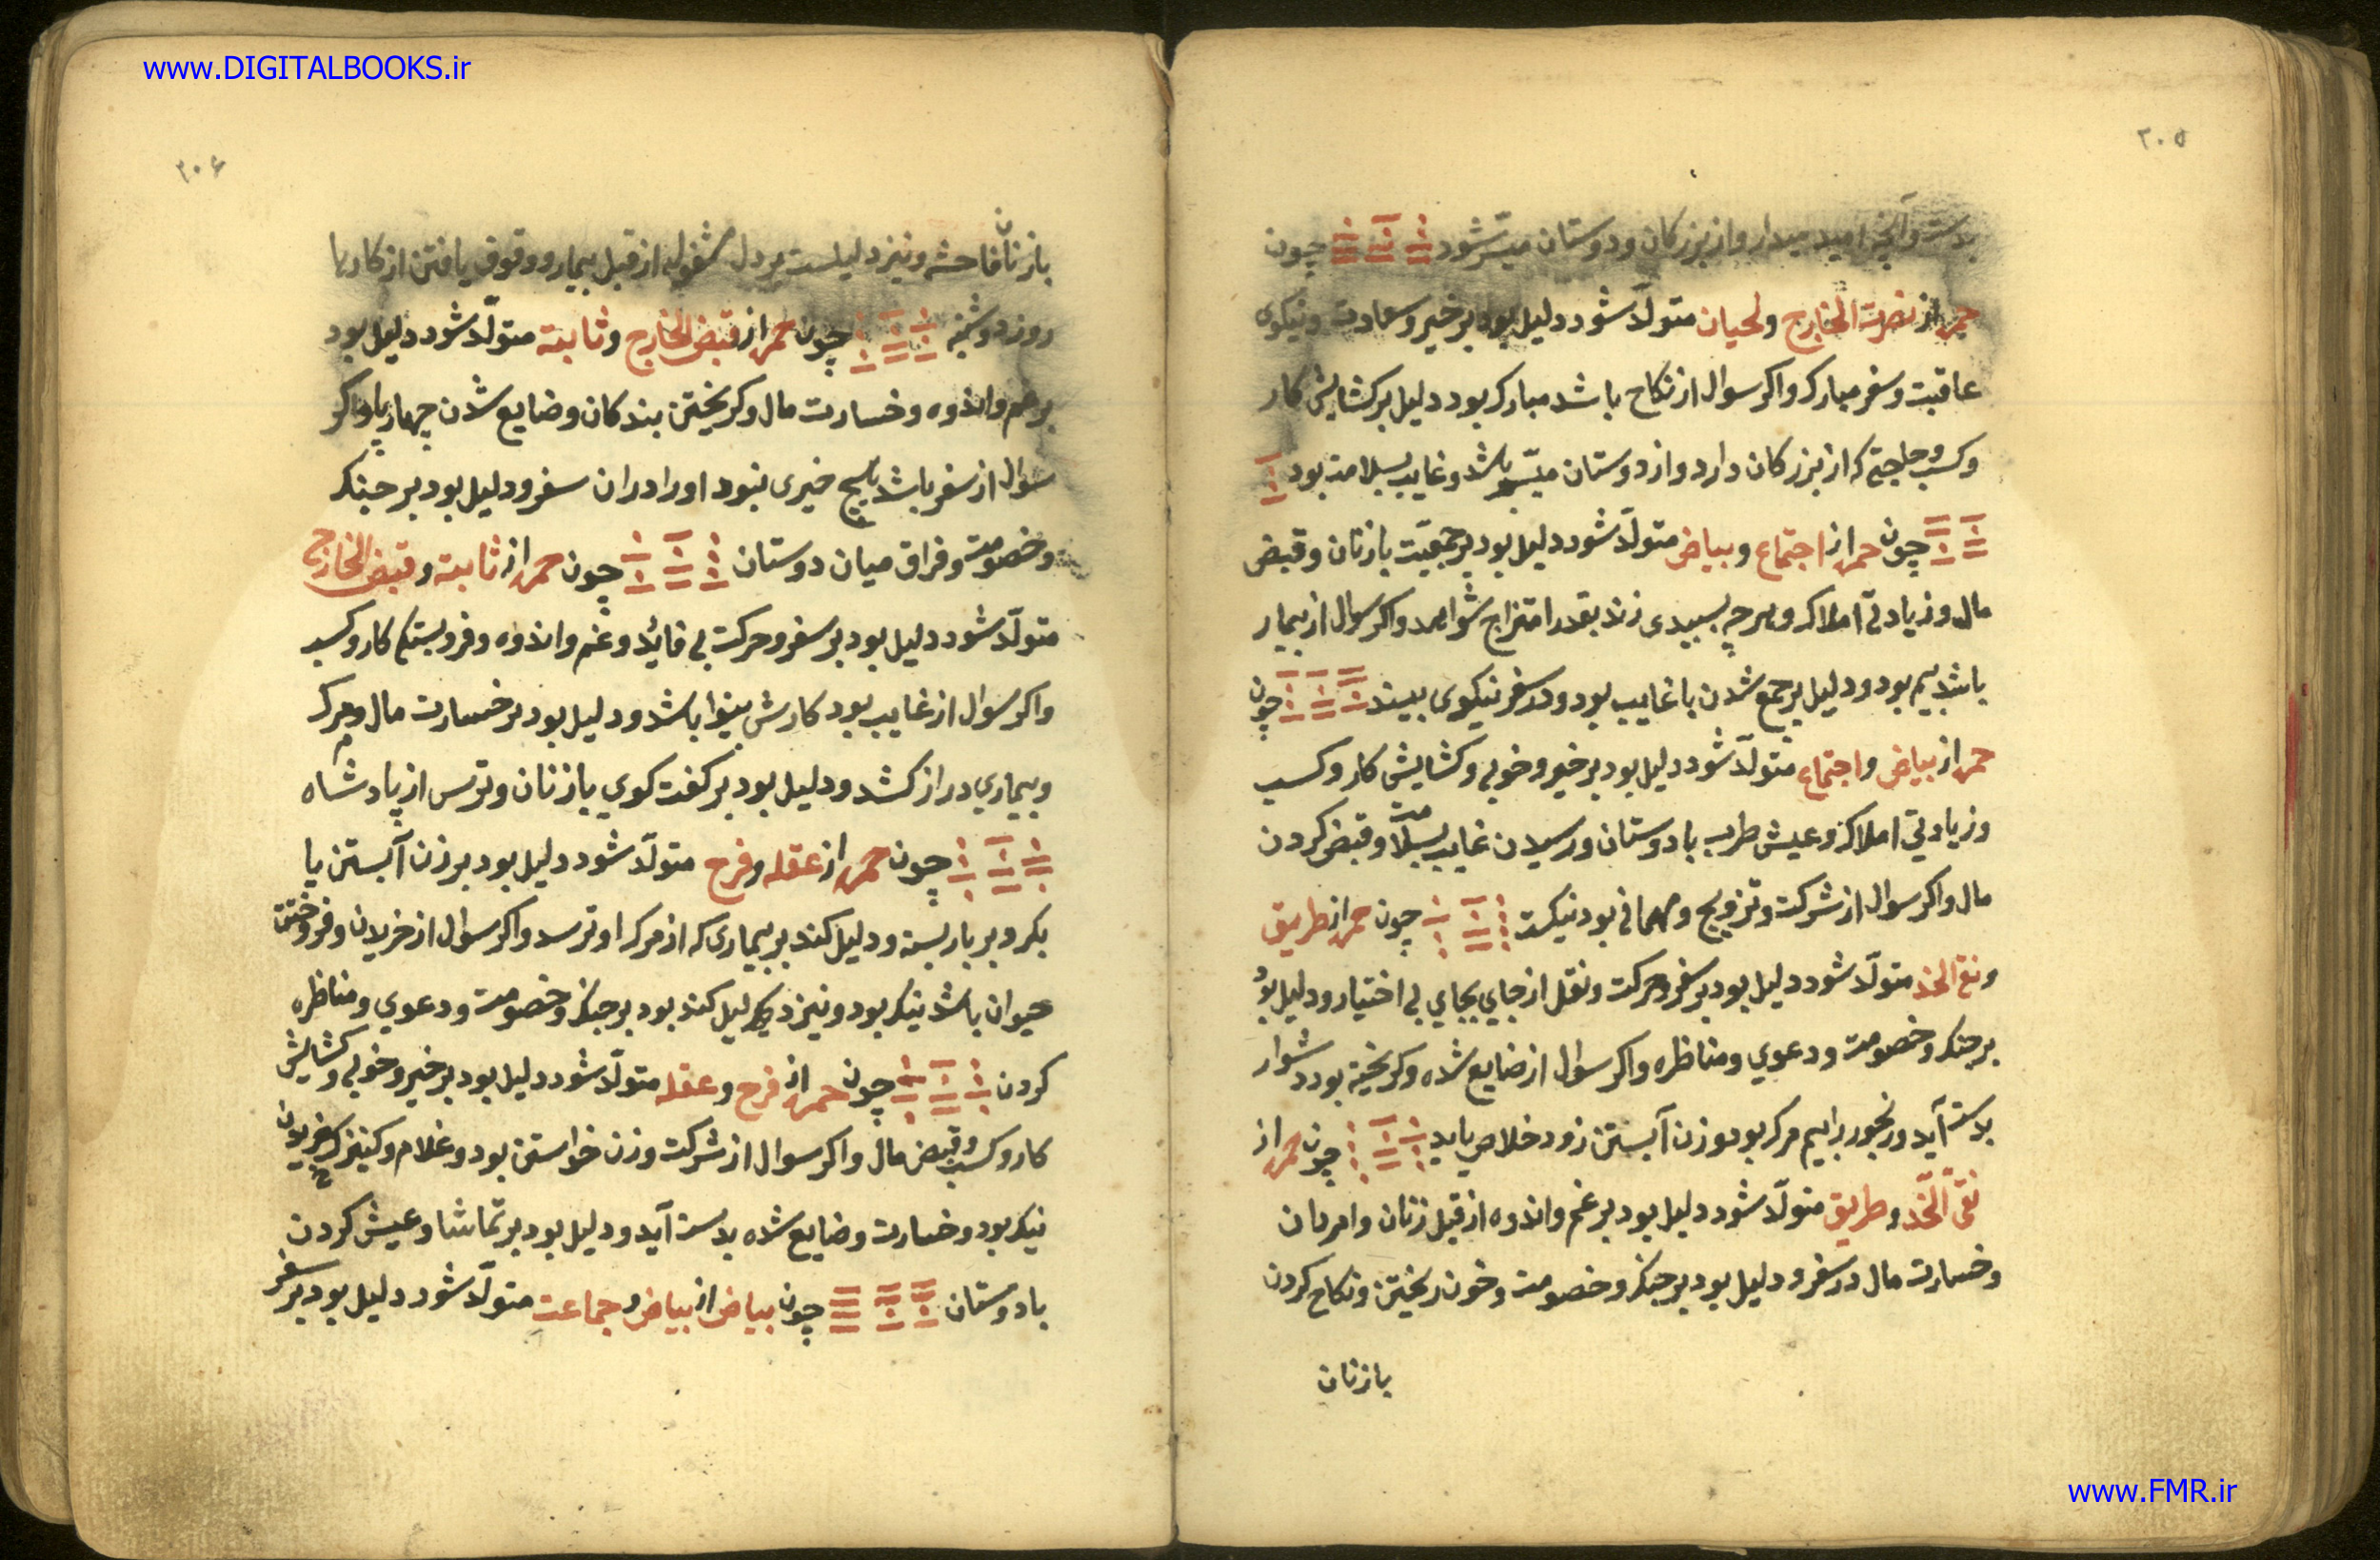 www.DIGITALBOOKS.ir
۲۰۵
بدست و آنچ امید میدارد از بزرکان و دوستان میسّر شود چون
حمره از نصرت الخارج ولحیان متولّد شود دلیل بود بر خیر و سعادت و نیکوی
عاقبت و سفر مبارک و اکر سوال از نکاح باشد مبارک بود دلیل بر کشایش کار
و کسب و حاجتی که از بزرکان دارد و از دوستان میسّر باشد و غایب بسلامت بود
چون حمره از اجتماع و بیاض متولّد شود دلیل بود بر جمعیّت بازنان و قبض
مال و زیادتی املاک و هر چه بسپیدی زند بقدر امتزاج شواهد و اکر سوال از بیمار
باشد بیم بود و دلیل بر جمع شدن با غایب بود و در سفر نیکوی بیند چون
حمره از بیاض و اجتماع متولّد شود دلیل بود بر خیر و خوبی و کشایش کار و کسب
و زیادتی املاک و عیش طرب با دوستان و رسیدن غایب بسلامت و قبض کردن
مال و اکر سوال از شرکت و تزویج و مهمانی بود نیکست چون حمره از طریق
و نقی الخد متولّد شود دلیل بود بر سفر و حرکت و نقل از جای بجای بی اختیار و دلیل بود
بر جنک و خصومت و دعوی و مناظره و اکر سوال از ضایع شده و کریخته بود دشوار
بدست آید و رنجور را بیم مرک بود و زن آبستن زود خلاص یابد چون حمره از
نقی الخد و طریق متولّد شود دلیل بود بر غم و اندوه از قبل زنان و امردان
و خسارت مال در سفر و دلیل بود بر جنک و خصومت و خون ریختن و نکاح کردن
بازنان
۲۰۶
بازنان فاحشه و نیز دلیلست بر دل مشغولی از قبل بیمار و وقوف یافتن از کارها
روز دوشنبه چون حمره از قبض الخارج و ثابته متولّد شود دلیل بود
بر غم و اندوه و خسارت مال و کریختن بندکان و ضایع شدن چهارپا و اکر
سوال از سفر باشد هیچ خیری نبود او را دران سفر و دلیل بود بر جنک
و خصومت و فراق میان دوستان چون حمره از ثابته و قبض الخارج
متولّد شود دلیل بود بر سفر و حرکت بی فایده و غم و اندوه و فروبستکی کار و کسب
و اکر سوال از غایب بود کارش بینوا باشد و دلیل بود بر خسارت مال و مرک
و بیماری دراز کشد و دلیل بود بر کفت کوی بازنان و ترس از پادشاه
چون حمره از عقله و فرح متولّد شود دلیل بود بر زن آبستن یا
بکر و بر بار بسته و دلیل کند بر بیماری که از مرک او ترسد و اکر سوال از خریدن و فروختن
حیوان باشد نیک بود و نیز دلیل کند بود بر جنک و خصومت و دعوی و مناظره
کردن چون حمره از فرح و عقله متولّد شود دلیل بود بر خیر و خوبی و کشایش
کار و کسب و قبض مال و اکر سوال از شرکت و زن خواستن بود و غلام و کنیزک خریدن
نیک بود و خسارت و ضایع شده بدست آید و دلیل بود بر تماشا و عیش کردن
با دوستان چون بیاض از بیاض و جماعت متولّد شود دلیل بود بر سفر
www.FMR.ir